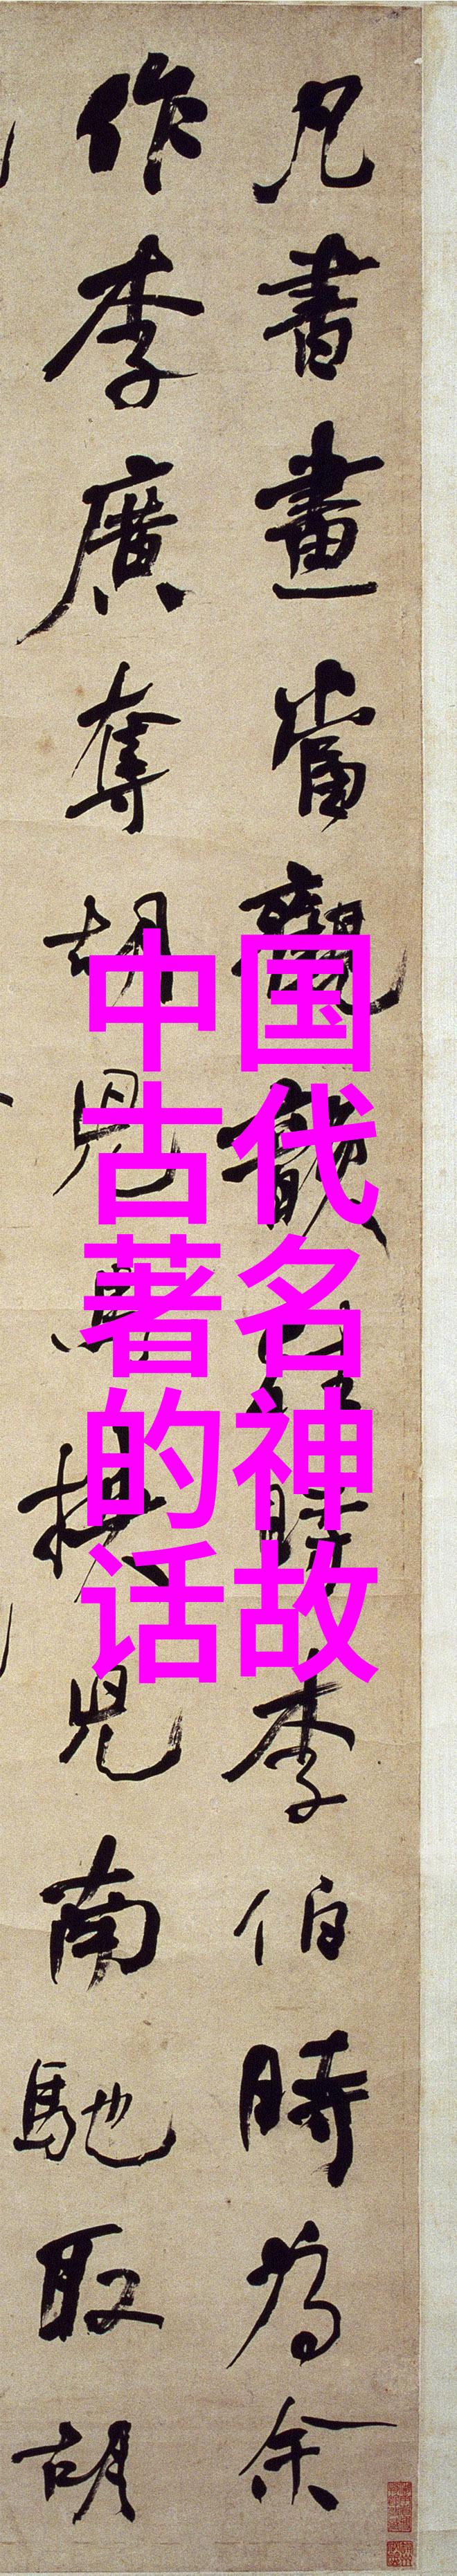 凡書畫當觀韻往時李伯時為余
作李廣奪胡兒馬挾兒南馳取胡
中国
古代
著名
的神
话故